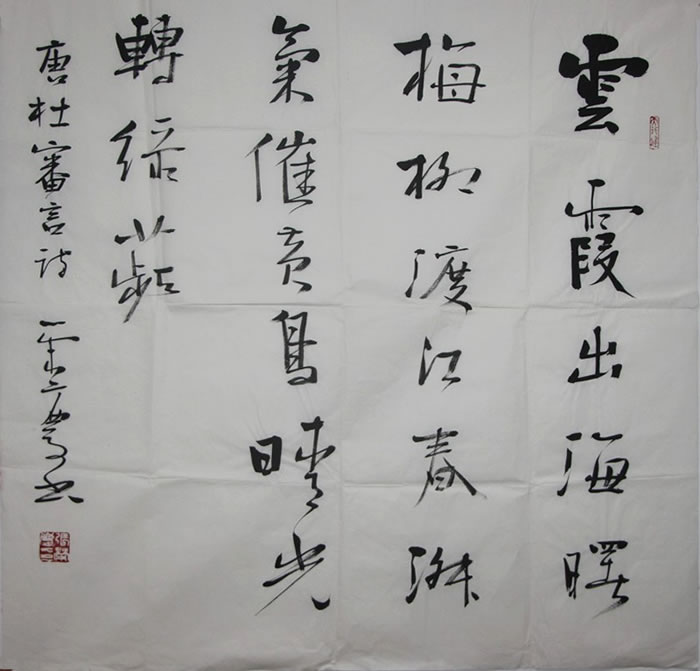 雲霞出海曙
梅柳渡江春淑
氣催黄鳥晴光
轉綠蘋
唐杜審言詩
書